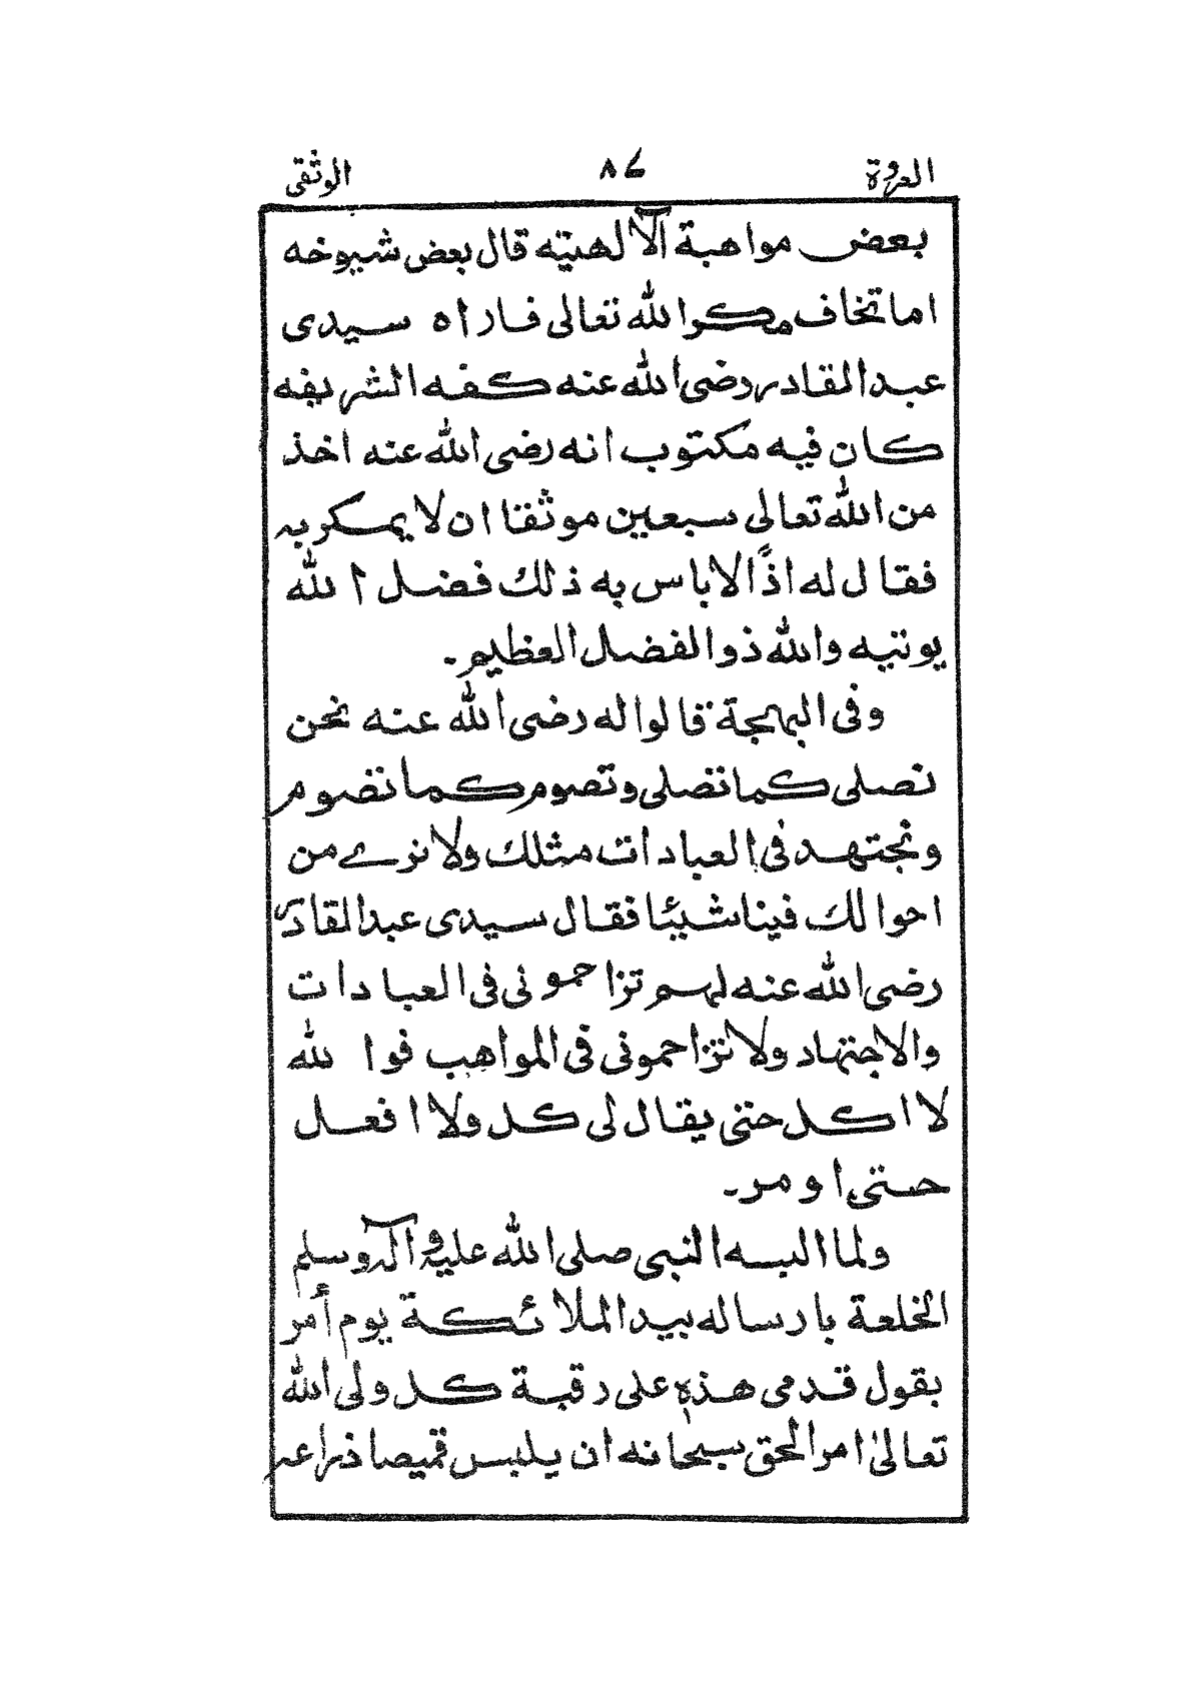 العروة ٨٤ الوثقى
بعض مواهبة الآلهيته قال بعض شيوخه
اما تخاف مكر الله تعالى فاراه سيدى
عبد القادر رضى الله عنه كفه الشريفه
كان فيه مكتوب انه رضى الله عنه اخذ
من الله تعالى سبعين موثقا ان لا يمكر به
فقال له اذًا لا باس به ذلك فضل الله
يوتيه والله ذو الفضل العظيم۔
وفى البهجة قالوا له رضى الله عنه نحن
نصلى كما تصلى وتصوم كما تضوم
ونجتهد فى العبادات مثلك ولا نرے من
احوالك فينا شيئا فقال سيدى عبد القادر
رضى الله عنه لهم تزاحمونى فى العبادات
والاجتهاد ولا تزاحمونى فى المواهب فوالله
لا اكل حتى يقال لى كل ولا افعل
حتى اومر۔
ولما البسه النبى صلى الله عليه وآله وسلم
الخلعة بارساله بيد الملائكة يوم أمر
بقول قدمى هذه على رقبة كل ولى الله
تعالىٰ امر الحق سبحانه ان يلبس قميصا ذراعه